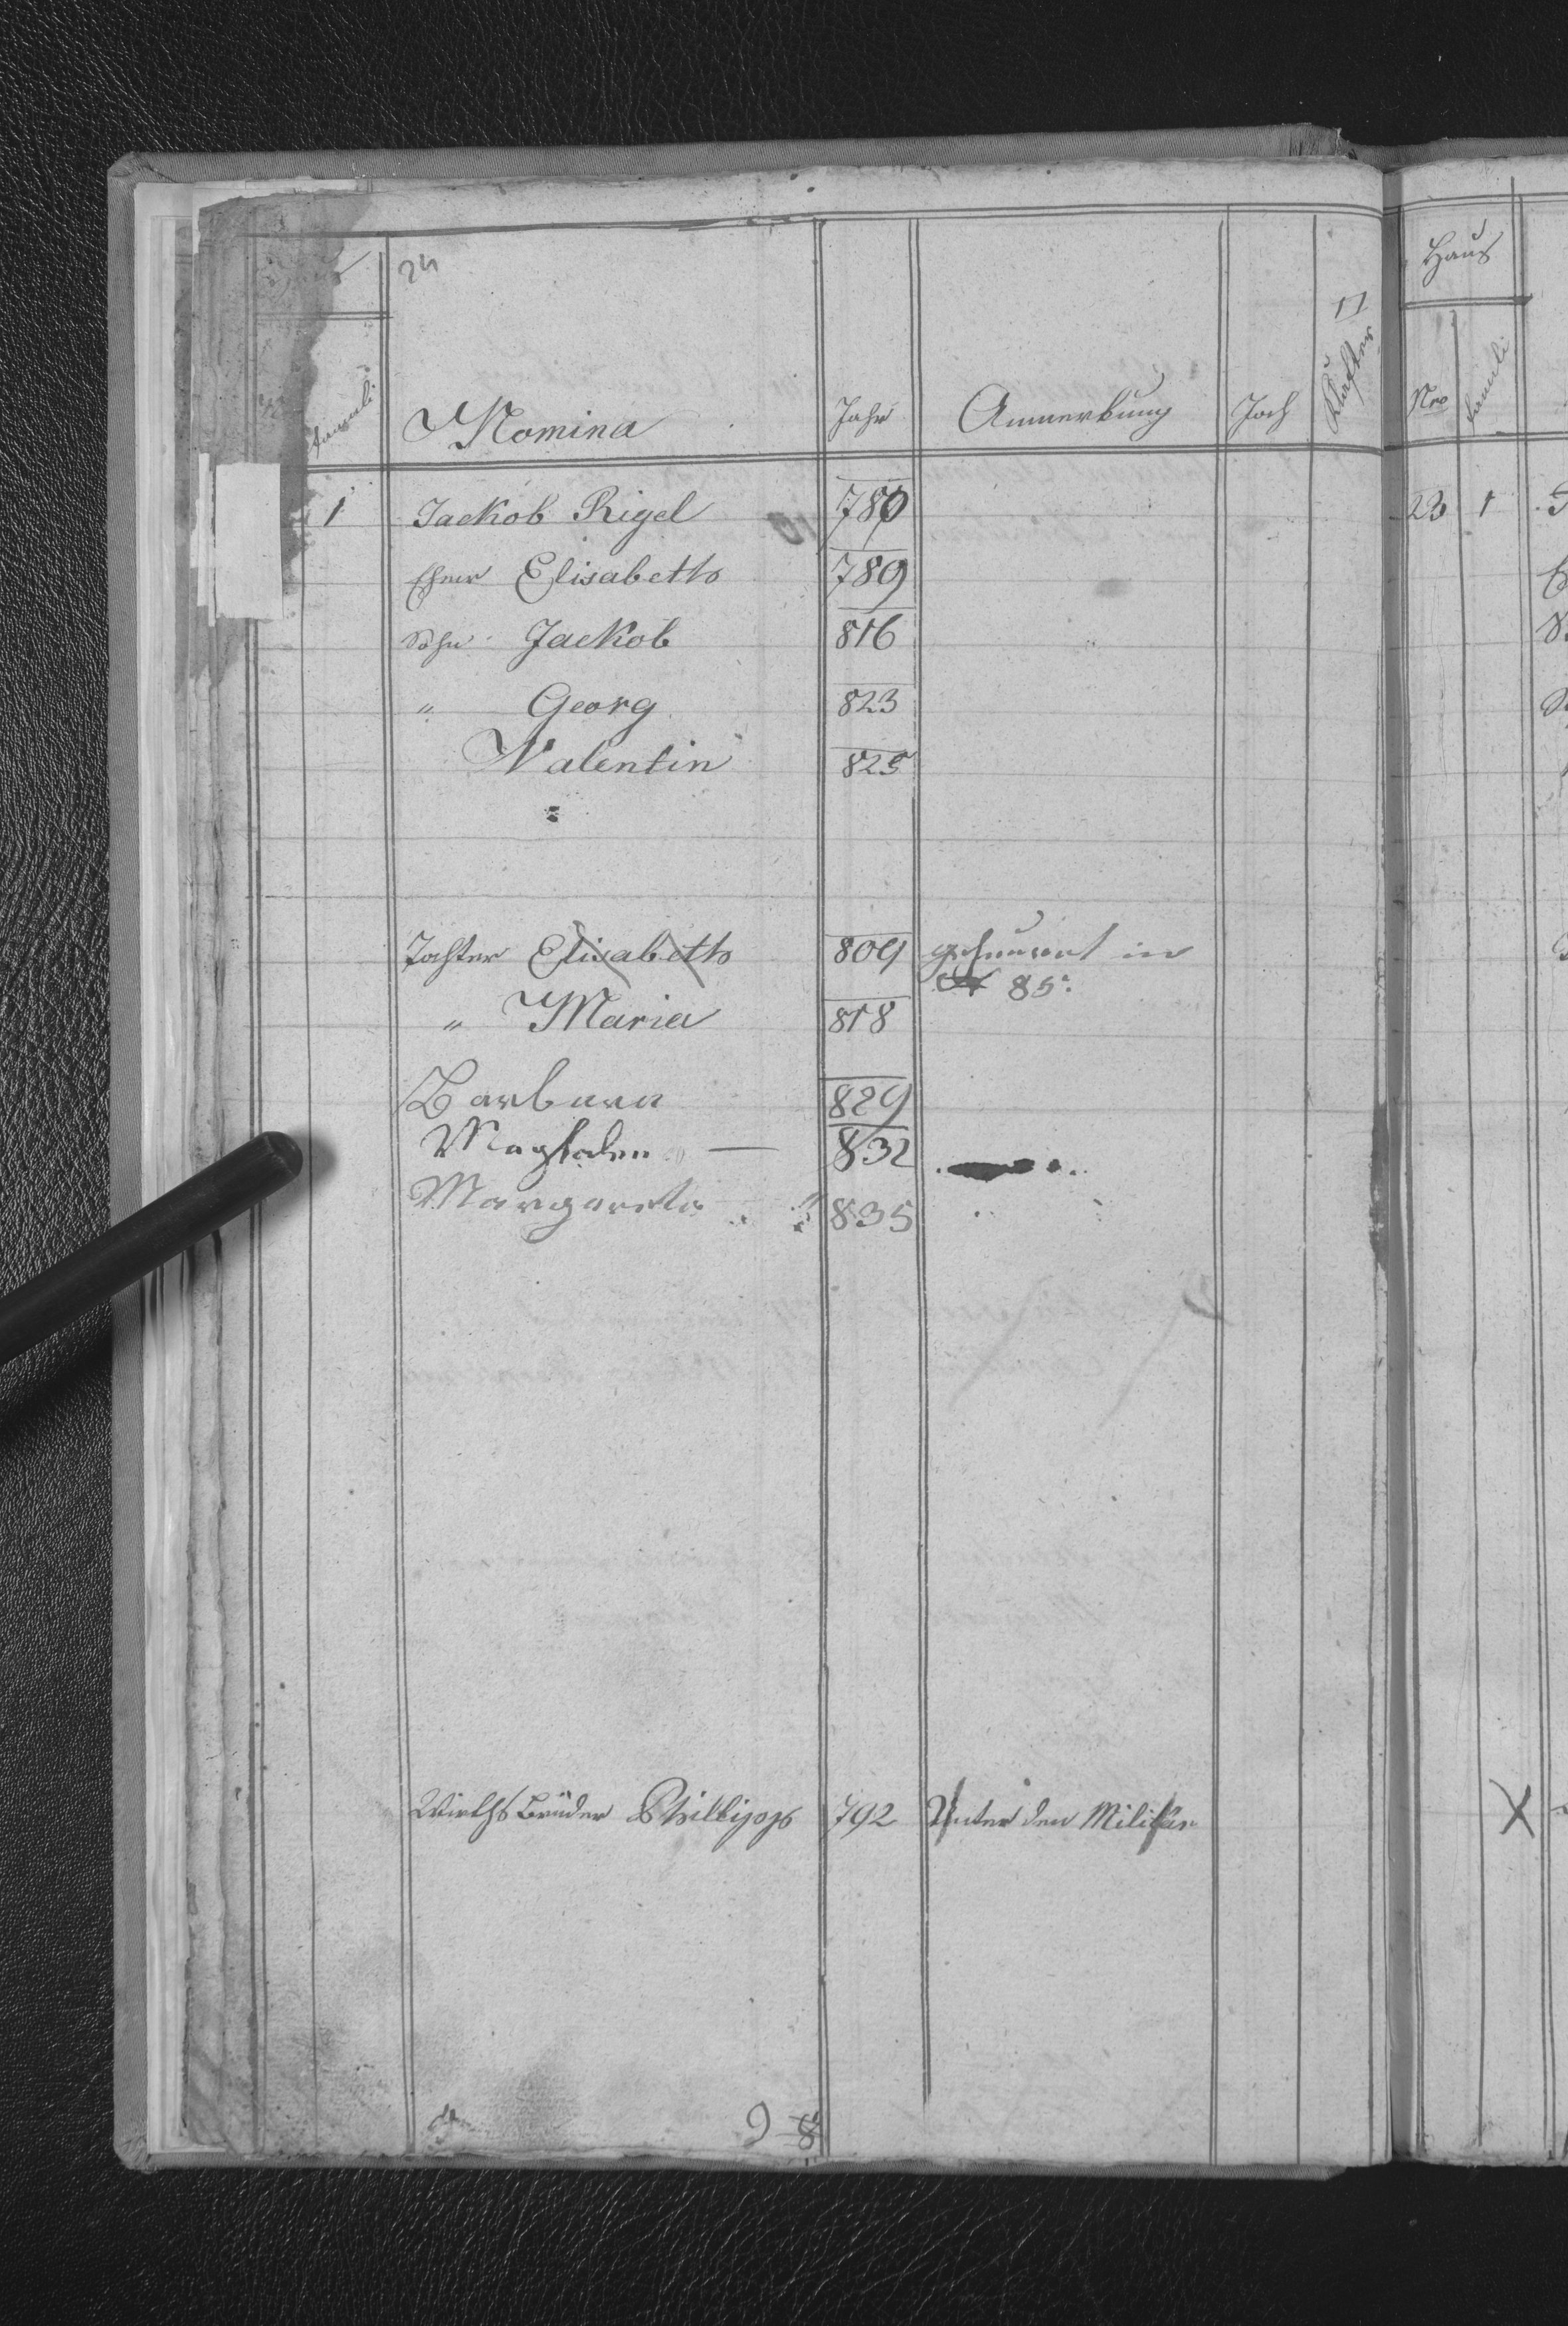 24
Famili Nomina Jahr Anmerkung Joch □ Klafter
1 Jackob Rigel 780
Ehew Elisabeth 789
Sohn Jackob 816
" Georg 823
Valentin 825
Tochter Elisabeth 809 geheurat in
N 85.
" Maria 818
Barbara 829
Magdalen — 832
Margareta 835
Wirths Brüder Phillipp 792 Unter den Militär
9 8
Haus
Nro Famili
23 1
X